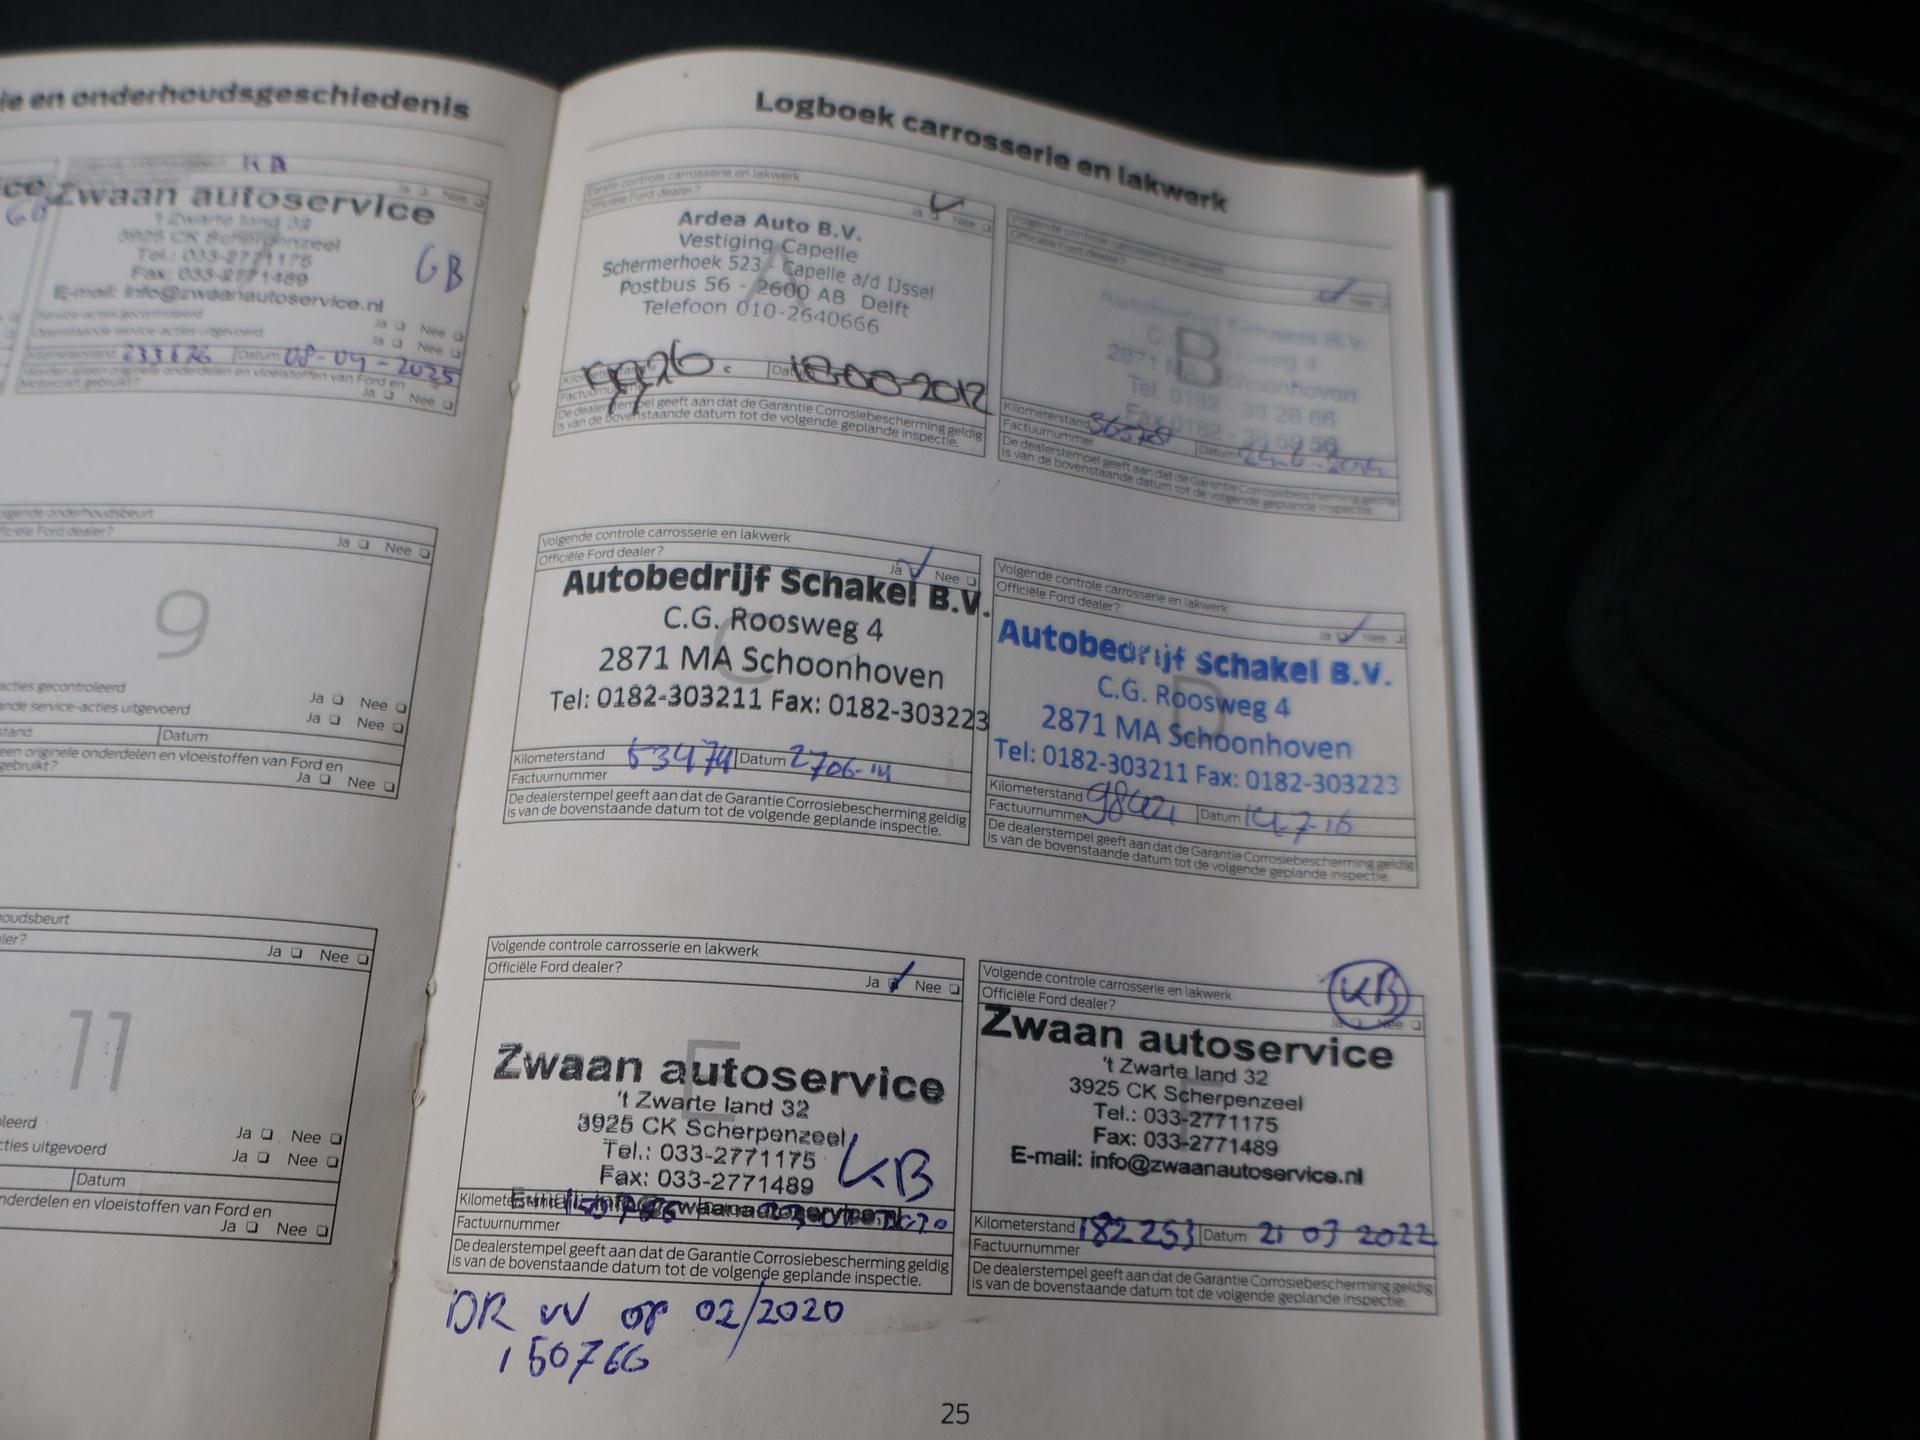 ie en onderhoudsgeschiedenis
Volgende onderhoudsbeurt KB
Ja Nee
ice Zwaan autoservice
GB
't Zwarte land 32
3925 CK Scherpenzeel
Tel.: 033-2771175
Fax: 033-2771489
GB
E-mail: info@zwaanautoservice.nl
Service-acties gecontroleerd
Ja Nee
Openstaande service-acties uitgevoerd
Ja Nee
Kilometerstand Datum 08-04-2025
Worden alleen originele onderdelen en vloeistoffen van Ford en
Motorcraft gebruikt?
Ja Nee
lgende onderhoudsbeurt
fficiële Ford dealer?
Ja Nee
9
acties gecontroleerd
Ja Nee
nde service-acties uitgevoerd
Ja Nee
stand Datum
een originele onderdelen en vloeistoffen van Ford en
gebruikt?
Ja Nee
houdsbeurt
ler?
Ja Nee
11
leerd
Ja Nee
cties uitgevoerd
Ja Nee
Datum
nderdelen en vloeistoffen van Ford en
Ja Nee
Logboek carrosserie en lakwerk
Eerste controle carrosserie en lakwerk
Officiële Ford dealer?
Ja Nee
Ardea Auto B.V.
Vestiging Capelle
A
Schermerhoek 523 - Capelle a/d IJssel
Postbus 56 - 2600 AB Delft
Telefoon 010-2640666
Kilometerstand Datum
Factuurnummer
De dealerstempel geeft aan dat de Garantie Corrosiebescherming geldig
is van de bovenstaande datum tot de volgende geplande inspectie.
Volgende controle carrosserie en lakwerk
Officiële Ford dealer?
Ja Nee
Autobedrijf Schakel B.V.
B
C.G. Roosweg 4
2871 MA Schoonhoven
Tel. 0182 - 38 28 66
Fax 0182 - 38 69 56
Kilometerstand
Factuurnummer Datum
De dealerstempel geeft aan dat de Garantie Corrosiebescherming geldig
is van de bovenstaande datum tot de volgende geplande inspectie.
Volgende controle carrosserie en lakwerk
Officiële Ford dealer?
Ja Nee
Autobedrijf Schakel B.V.
C
C.G. Roosweg 4
2871 MA Schoonhoven
Tel: 0182-303211 Fax: 0182-303223
Kilometerstand 53474 Datum 2706-14
Factuurnummer
De dealerstempel geeft aan dat de Garantie Corrosiebescherming geldig
is van de bovenstaande datum tot de volgende geplande inspectie.
Volgende controle carrosserie en lakwerk
Officiële Ford dealer?
Ja Nee
Autobedrijf Schakel B.V.
D
C.G. Roosweg 4
2871 MA Schoonhoven
Tel: 0182-303211 Fax: 0182-303223
Kilometerstand
Factuurnummer Datum 14-7-16
De dealerstempel geeft aan dat de Garantie Corrosiebescherming geldig
is van de bovenstaande datum tot de volgende geplande inspectie.
Volgende controle carrosserie en lakwerk
Officiële Ford dealer?
Ja Nee
E
Zwaan autoservice
't Zwarte land 32
3925 CK Scherpenzeel
Tel.: 033-2771175
KB
Fax: 033-2771489
E-mail: info@zwaanautoservice.nl
Kilometerstand 150766
Factuurnummer
De dealerstempel geeft aan dat de Garantie Corrosiebescherming geldig
is van de bovenstaande datum tot de volgende geplande inspectie.
DR VV op 02/2020
150766
Volgende controle carrosserie en lakwerk
KB
Officiële Ford dealer?
Ja Nee
Zwaan autoservice
F
't Zwarte land 32
3925 CK Scherpenzeel
Tel.: 033-2771175
Fax: 033-2771489
E-mail: info@zwaanautoservice.nl
Kilometerstand 182253 Datum 21 03 2022
Factuurnummer
De dealerstempel geeft aan dat de Garantie Corrosiebescherming geldig
is van de bovenstaande datum tot de volgende geplande inspectie.
25